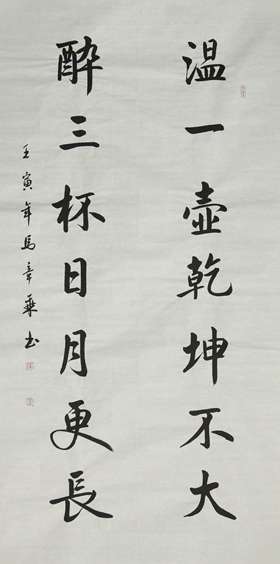 温一壺乾坤不大
醉三杯日月更長
壬寅年馬章乘书